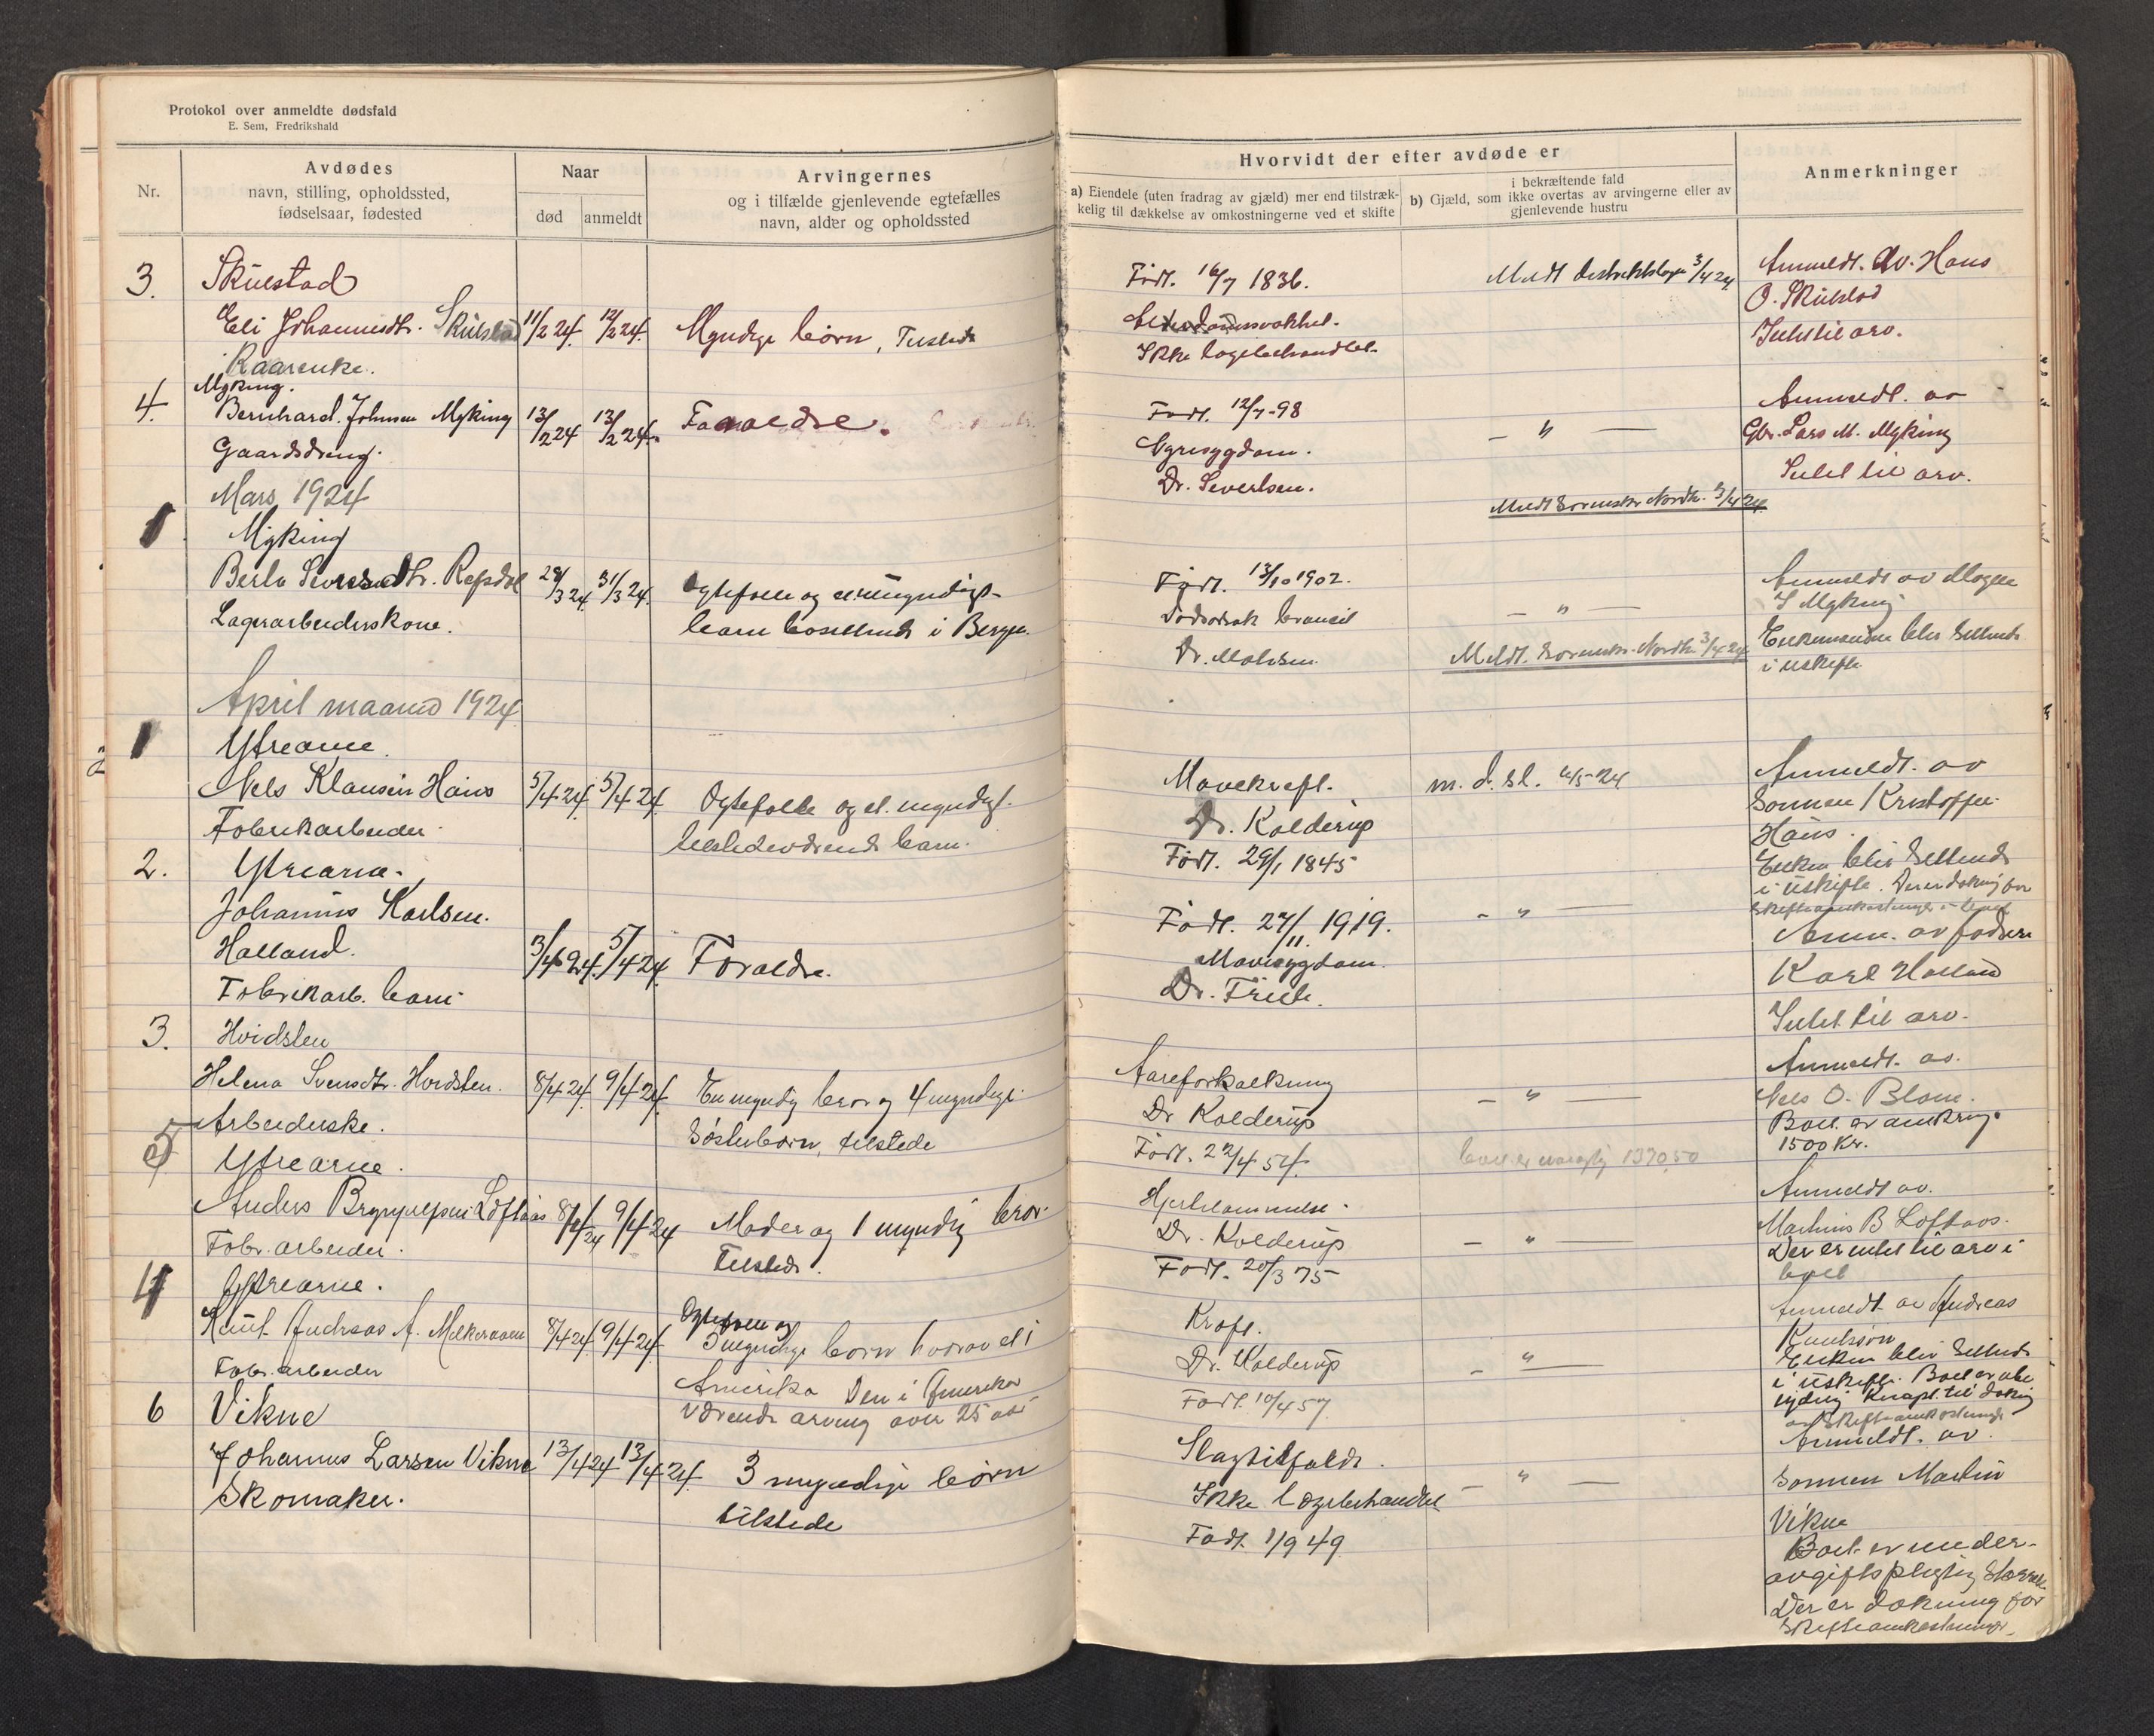 Protokol over anmeldte dødsfald
E. Sem, Fredrikshald
Nr.
Avdødes
navn, stilling, opholdssted,
fødselsaar, fødested
Naar
død
anmeldt
Arvingernes
og i tilfælde gjenlevende egtefælles
navn, alder og opholdssted
3.
Skulstad
Eli Johannesdtr. Skulstad 11/2 24. 12/2 24. Myndige børn, Tilstede
Kaarenke.
Myking.
4. Bernhard Johnsen Myking 13/2 24 13/2 24. Foraldre.
Gaardsdreng.
Mars 1924
1 Myking
Berta Seversdtr. Repsdal 28/3 24. 31/3 24. Egtefolle og et umyndigt
Lagerarbeiderskone. barn bosittende i Bergen.
April maaned 1924
1 Ytrearne
Nels Klausen Haus 5/4 24. 5/4 24. Egtefolle og et. myndigt.
Fabrikarbeider. tilstedeværende barn.
2. Ytrearne.
Johannes Karlsen.
Halland. 3/4 24. 5/4 24. Foraldre.
Fabrikarb. barn
3. Hvidsten
Helena Svensdtr. Hvidsten. 8/4 24. 9/4 24. En myndig bror og 4 myndige
Arbeiderske. Søsterbørn, tilstede
Ytrearne.
Anders Brynjulfsen Loftaas 8/4 24 9/4 24 Moder og 1 myndig bror.
Fabr. arbeider. Tilstede.
4 Ytrearne.
Knut Andreas A. 8/4 24. 9/4 24. Egtefolle og
3 myndige børn hvorav et i
Fabr. arbeider Amerika Den i Amerika
værende arving over 25 aar
6 Vikne
Johannes Larsen Vikne 13/4 24 13/4 24. 3 myndige børn
Skomaker. tilstede
Hvorvidt der efter avdøde er
a) Eiendele (uten fradrag av gjæld) mer end tilstræk-
kelig til dækkelse av omkostningerne ved et skifte
i bekræftende fald
b) Gjæld, som ikke overtas av arvingerne eller av
gjenlevende hustru
Anmerkninger
Født. 16/7 1836. Meldt 3/4 24 Anmeldt. av. Hans
O. Skulstad
Alderdomssvakhet.
Ikke lægebehandlet. Intet til arv.
Født. 12/7-98 — " — Anmeldt. av
Gbr. Lars M. Myking
Dr. Severtsen. Intet til arv.
Meldt Sorenskr. Nordh. 3/4 24
Født. 13/10 1902. Anmeldt av Mogens
S Myking
— " —
Dr. Enkemanden blir sittende
Meldt. Sorenskr. Nordh. 3/4 24 i uskifte
Mavekreft. m. d. sl. Anmeldt. av
Dr. Kolderup Sønnen Kristoffer
Haus.
Født. 29/1 1845 Enken blir sittende
i uskifte.
Født. 27/11. 1919. - " —
Mavesygdom. Anm. av faderen
Dr. Friele. Karl Halland
Intet til arv.
Aareforkalkning Anmeldt. av.
Dr Kolderup — " — Nels O. Blom.
Boet er omkring
Født. 22/4 54. 1370,50 1500 Kr.
Hjertelammelse. Anmeldt av.
Dr. Kolderup — " — Martinus B Loftaas.
Født. 20/3 75 Der er intet til arv i
boet
Kreft. Anmeldt av Andreas
Knutsøn
Dr. Kolderup - " — Enken blir sittende
i uskifte.
Født. 10/4 57
Anmeldt. av.
Slagtilfælde. - " — Sønnen Martin
Ikke lægebehandlet Vikne
Født 1/9 49 Boet er under
avgiftspligtig
Der er dækning for
skifteomkostninger.